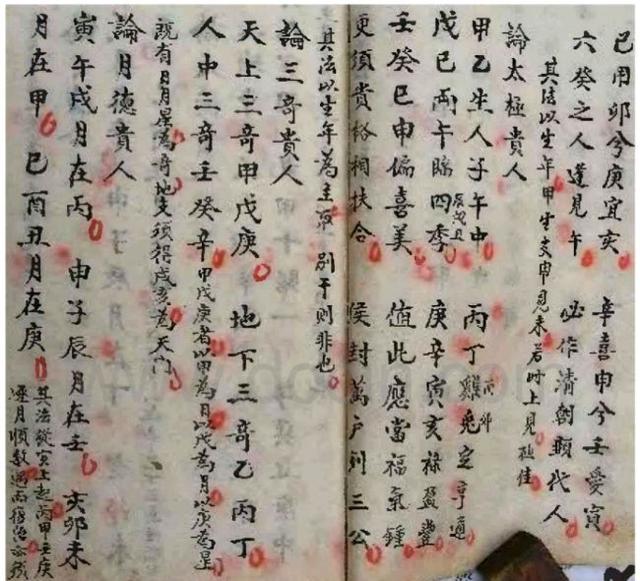 己用卯兮庚宜亥 辛喜申兮壬愛寅
六癸之人逢見午 必作清朝顯代人
其法以生年甲生支申見未若時上見極佳
論太極貴人
甲乙生人子午中 丙丁雞兔定亨通
酉卯
戊己兩午臨四季 庚辛寅亥祿盈豐
辰戌丑
壬癸巳申偏喜美 值此應當福氣鍾
更須貴格相扶合 候封萬戶列三公
其法以生年為主取別干則非也
論三奇貴人
天上三奇甲戊庚 地下三奇乙丙丁
人中三奇壬癸辛 甲戊庚者以甲為日以戊為月以庚為星
既有日月星為奇地支須得戌亥為天門
論月德貴人
寅午戌月在丙 申子辰月在壬 亥卯未
月在甲 巳酉丑月在庚
其法從寅上起丙甲壬庚
逐月順數週而復始